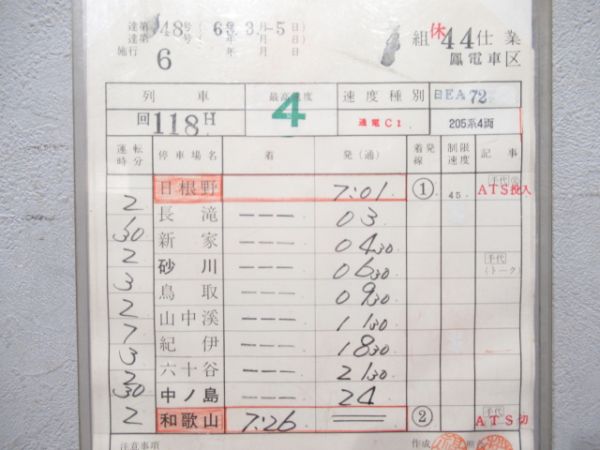 達第148号 (63年3月-5日)
達第 号 年 月 日
施行 6
組 休44仕業
鳳電車区
列車 最高速度 4 速度種別 日EA72
回118H 通電C1 205系4両
運転時分 停車場名 着 発(通) 着発線 制限速度 記事
日根野 7:01 ① 45 手代 ATS投入
2
長滝 --- 03
1 30
新家 --- 04 30
2
砂川 --- 06 30 手代(トーク)
3
鳥取 --- 09 30
2
山中渓 --- 11 30
7
紀伊 --- 18 30
3
六十谷 --- 21 30
2 30
中ノ島 --- 24
2
和歌山 7:26 ② 手代 ATS切
注意事項 作成